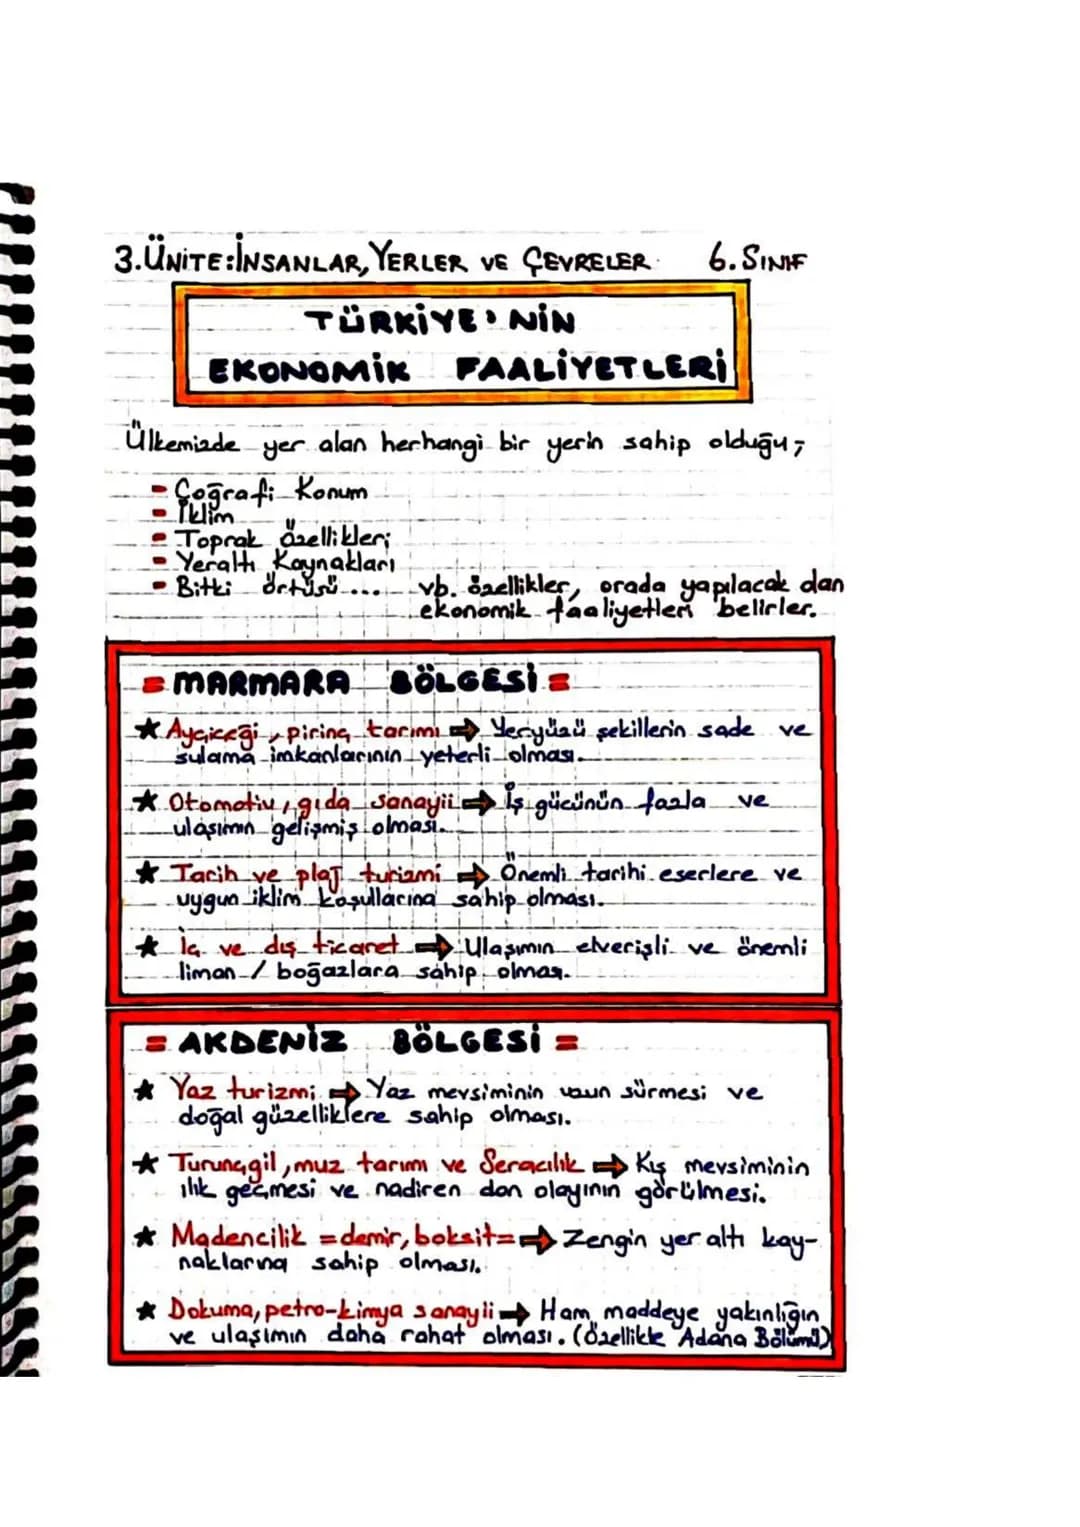 3.ÜNİTE:İNSANLAR, YERLER VE ÇEVRELER 6. SINIF
TÜRKİYE'NİN
EKONOMİK FAALİYETLERİ
Ülkemizde yer alan herhangi bir yerin sahip olduğu;
- Coğrafi Konum
- İklim
- Toprak özellikleri
- Yeraltı Kaynakları
- Bitki örtüsü ... vb. özellikler, orada yapılacak olan
ekonomik faaliyetleri belirler.
= MARMARA BÖLGESİ =
★ Ayçiçeği, pirinç tarımı ➡ Yeryüzü şekillerin sade ve
sulama imkanlarının yeterli olması.
★ Otomotiv, gıda sanayii ➡ İş gücünün fazla ve
ulaşımın gelişmiş olması.
★ Tarih ve plaj turizmi ➡ Önemli tarihi eserlere ve
uygun iklim koşullarına sahip olması.
★ İç ve dış ticaret ➡ Ulaşımın elverişli ve önemli
liman / boğazlara sahip olması.
= AKDENİZ BÖLGESİ =
★ Yaz turizmi ➡ Yaz mevsiminin uzun sürmesi ve
doğal güzelliklere sahip olması.
★ Turunçgil, muz tarımı ve Seracılık ➡ Kış mevsiminin
ılık geçmesi ve nadiren don olayının görülmesi.
★ Madencilik =demir, boksit= ➡ Zengin yer altı kay-
naklarına sahip olması.
★ Dokuma, petro-kimya sanayii ➡ Ham maddeye yakınlığın
ve ulaşımın daha rahat olması. (Özellikle Adana Bölümü)